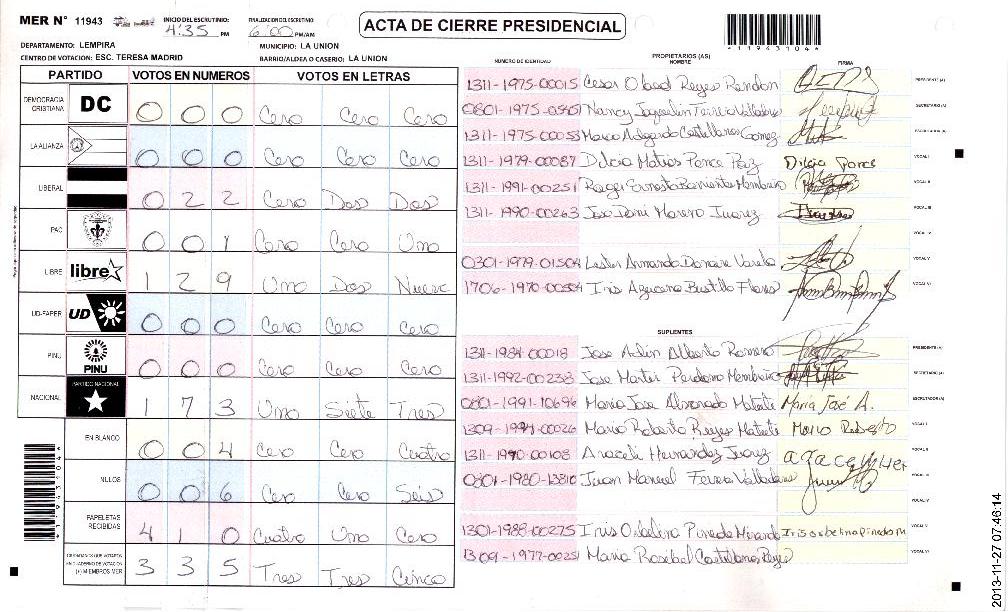 MER N° 11943 INICIO DEL ESCRUTINIO: 4:35 PM FINALIZACION DEL ESCRUTINIO 6:00 PM/AM
ACTA DE CIERRE PRESIDENCIAL
DEPARTAMENTO: LEMPIRA MUNICIPIO: LA UNION
CENTRO DE VOTACION: ESC. TERESA MADRID BARRIO/ALDEA O CASERIO: LA UNION
PARTIDO VOTOS EN NUMEROS VOTOS EN LETRAS
DEMOCRACIA CRISTIANA DC 0 0 0 Cero Cero Cero
LA ALIANZA 0 0 0 Cero Cero Cero
LIBERAL 0 2 2 Cero Dos Dos
PAC 0 0 1 Cero Cero Uno
LIBRE libre 1 2 9 Uno Dos Nueve
UD-FAPER UD 0 0 0 Cero Cero Cero
PINU PINU 0 0 0 Cero Cero Cero
NACIONAL PARTIDO NACIONAL 1 7 3 Uno Siete Tres
EN BLANCO 0 0 4 Cero Cero Cuatro
NULOS 0 0 6 Cero Cero Seis
PAPELETAS RECIBIDAS 4 1 0 Cuatro Uno Cero
CIUDADANOS QUE VOTARON EN CUADERNO DE VOTACION (+) MIEMBROS MER 3 3 5 Tres Tres Cinco
*11943104*
PROPIETARIOS (AS)
NUMERO DE IDENTIDAD NOMBRE FIRMA
1311-1975-00015 Cesar Obed Reyes Rendon PRESIDENTE (A)
0801-1975-0 Nancy SECRETARIO (A)
1311-1975-00053 Mario Castellanos Gomez ESCRUTADOR (A)
1311-1979-00087 Dilcia Matios Ponce Paz Dilcia Ponce VOCAL I
1311-1991-00251 Roger Ernesto Barrientos Membreño VOCAL II
1311-1990-00263 Jose Moreno Juarez VOCAL III
VOCAL IV
0301-1979-01504 Lester Armando Varela VOCAL V
1706-1970-00304 Iris Azucena Bustillo Flores VOCAL VI
SUPLENTES
1311-1984-00018 Jose Alberto Romero PRESIDENTE (A)
1311-1992-00238 Jose Perdomo Membreño SECRETARIO (A)
0801-1991-10696 Maria Jose Alvarado Maria José A. ESCRUTADOR (A)
1309-1994-00026 Mario Roberto Reyes Mario Roberto VOCAL I
1311-1990-00108 Araceli Hernandez VOCAL II
0801-1980-13810 Juan Manuel Valladares VOCAL III
VOCAL IV
1301-1988-00275 Iris Pineda Miranda VOCAL V
1309-1977-0025 Maria Castellanos Reyes VOCAL VI
2013-11-27 07:46:14